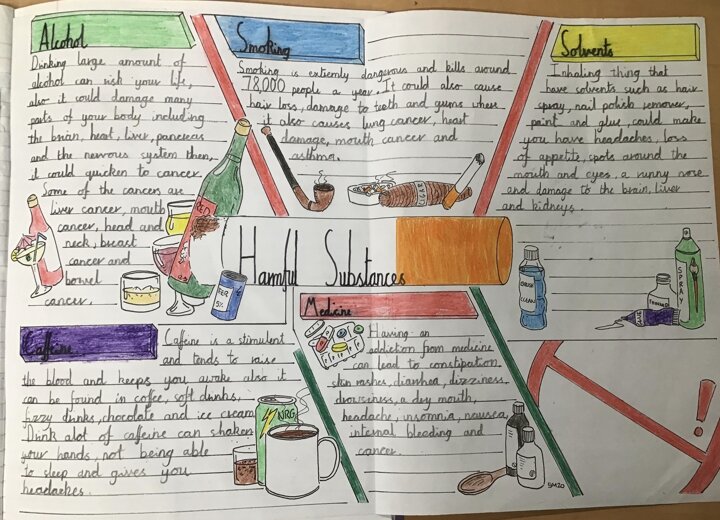 Alcohol
Drinking large amount of
alcohol can risk your life,
also it could damage many
parts of your body including
the brain, heart, liver, pancreas
and the nervous system then,
it could quicken to cancer.
Some of the cancers are
liver cancer, mouth
cancer, head and
neck, breast
cancer and
bowel
cancer.
Smoking
Smoking is extremly dangerous and kills around
78,000 people a year. It could also cause
hair loss, damage to teeth and gums when
it also causes lung cancer, heart
damage, mouth cancer and
asthma.
CIGAR
Solvents
Inhaling thing that
have solvents such as hair
spray, nail polish remover,
paint and glue, could make
you have headaches, loss
of appetite, spots around the
mouth and eyes, a runny nose
and damage to the brain, liver
and kidneys.
SPRAY
GLUE
RED
BEER
5%
Harmful Substances
Caffeine
Caffeine is a stimulent
and tends to raise
the blood and keeps you awake also it
can be found in coffee, soft drinks,
fizzy drinks, chocolate and ice cream.
Drink alot of caffeine can shaken
your hands, not being able
to sleep and gives you
headaches.
NRG
Medicine
Having an
addiction from medicine
can lead to constipation,
skin rashes, diarrhea, dizziness,
drowsiness, a dry mouth,
headache, insomnia, nausea,
internal bleeding and
cancer.
SM20
!